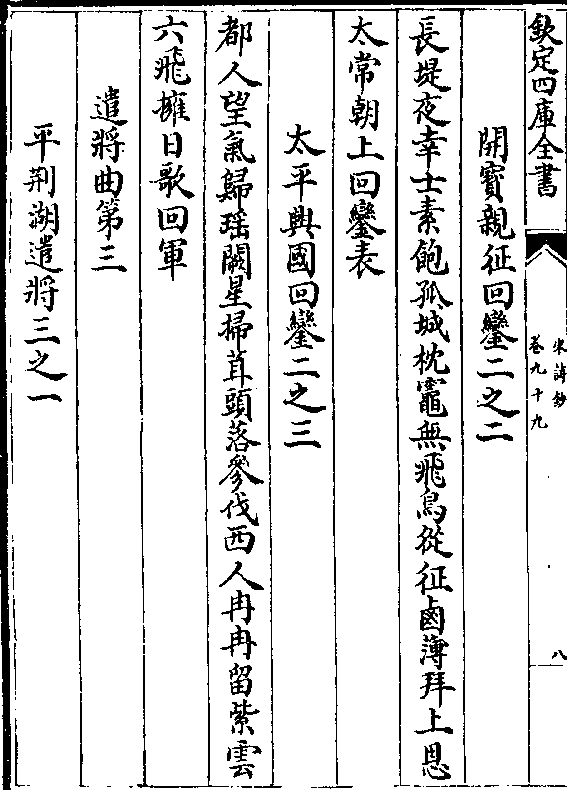 欽定四庫全書
宋詩鈔
卷九十九
八
開寶親征回鑾二之二
長堤夜幸士素飽孤城枕竈無飛鳥從征鹵薄拜上恩
太常朝上回鑾表
太平興國回鑾二之三
都人望氣歸瑶闕星掃茸頭落參伐西人冉冉留紫雲
六飛擁日歌回軍
遣將曲第三
平荆湖遣將三之一